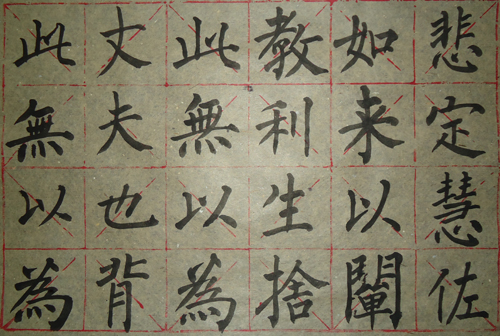 悲定慧佐
如来以闡
教利生捨
此無以為
丈夫也背
此無以為